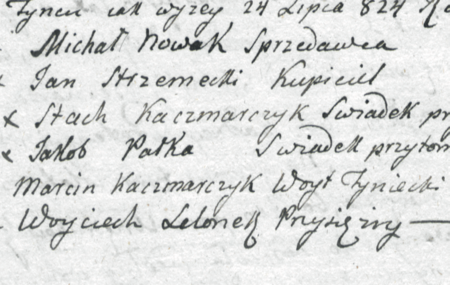 Tyńcu jak wyzey 24 Lipca 824
Michał Nowak Sprzedawca
Jan Strzemecki Kupiciel
x Stach Kaczmarczyk Swiadek
x Jakób Pałka Swiadek
Marcin Kaczmarczyk Woyt Tyniecki
Woyciech Lelonek Przysięzny